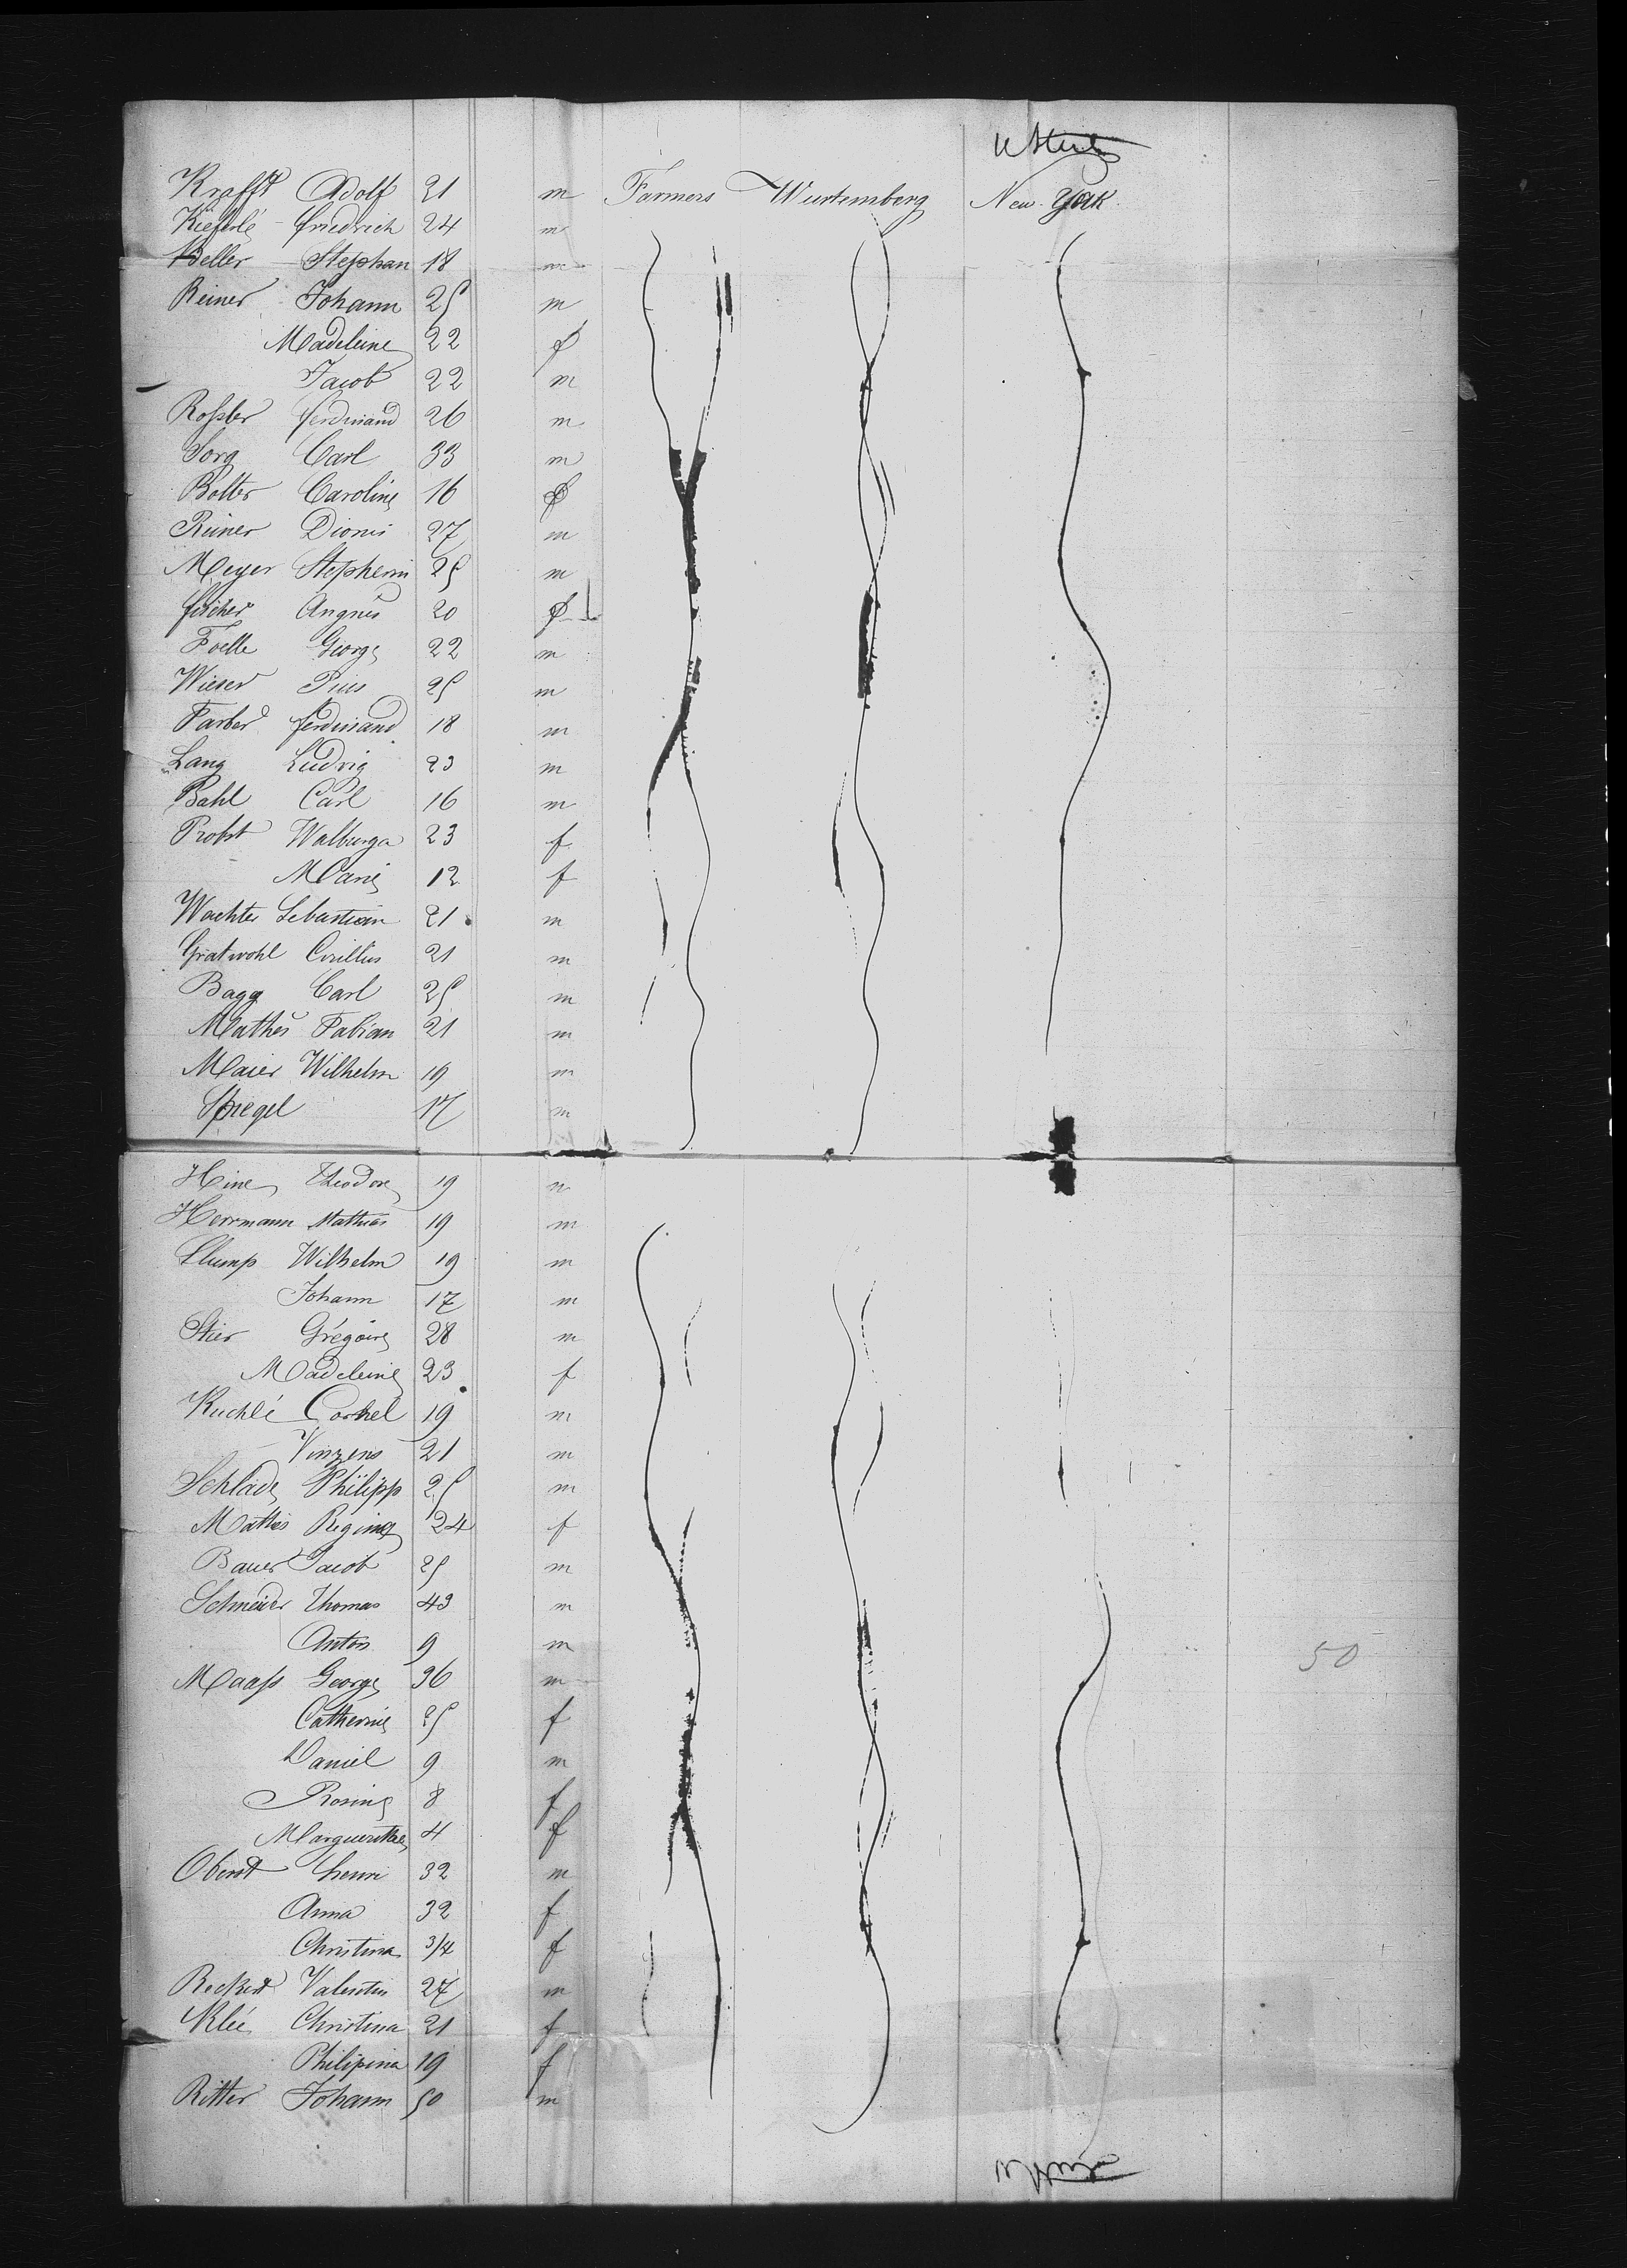 U States
Krafft Adolf 21 m Farmers Wurtemberg New-York
Kieferlé Friedrich 24 m
Beller Stephan 18 m
Reiner Johann 25 m
Madeleine 22 f
Jacob 22 m
Roßler ferdinand 26 m
Sorg Carl 33 m
Bolter Caroline 16 f
Reiner Dionis 27 m
Meyer 25 m
fischer Angnes 20 f
Foelle George 22 m
Wieser Pius 25 m
Farber ferdinand 18 m
Lang Ludvig 23 m
Bahl Carl 16 m
Probst Walburga 23 f
Marie 12 f
Wachter Sebastian 21 m
Gratwohl Cirillus 21 m
Bagg Carl 25 m
Mathes Fabian 21 m
Maier Wilhelm 19 m
Spiegel 17 m
Heine Theodore 19 m
Herrmann Mathias 19 m
Stump Wilhelm 19 m
Johann 17 m
Stier Grégoire 28 m
Madeleine 23 f
Kuchlé 19 m
Vinzens 21 m
Schlade Philipp 25 m
Mathis Regine 24 f
Bauer Jacob 25 m
Schneider Thomas 43 m
Anton 9 m
50
Maaß George 36 m
Catherine 25 f
Daniel 9 m
Rosine 8 f
Marguerithe 4 f
Oberst henri 32 m
Anna 32 f
Christina 3/4 f
Reckert Valentin 27 m
Klée Christina 21 f
Philipina 19 f
Ritter Johann 50 m